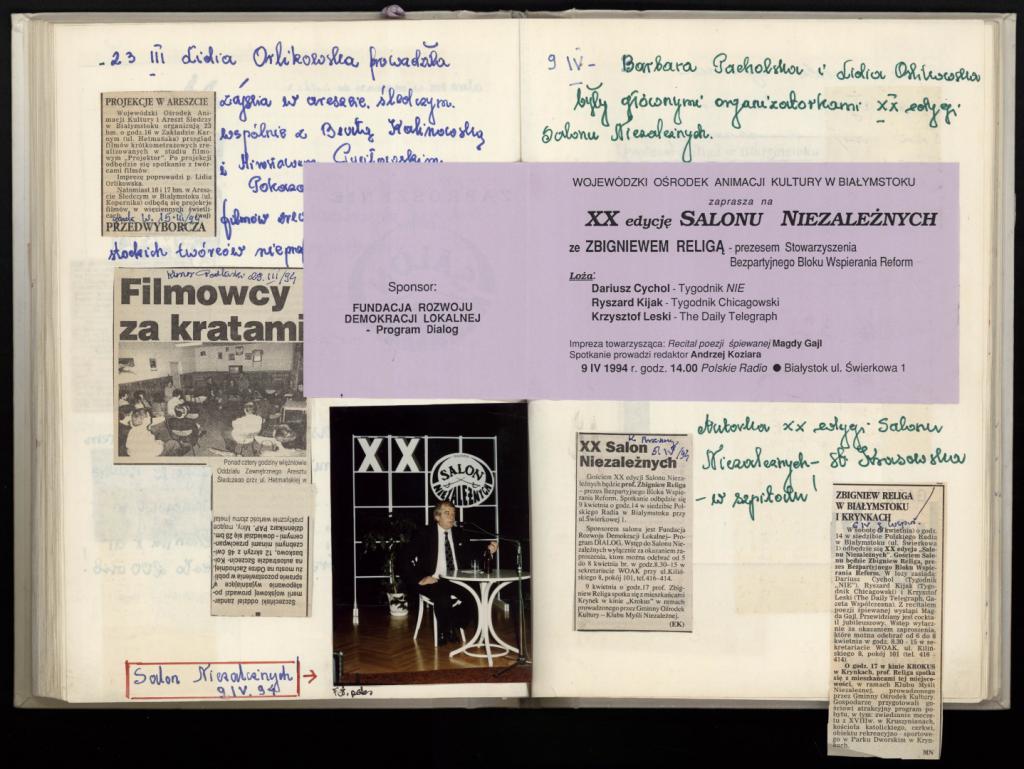 23 III Lidia Orlikowska prowadziła
zajęcia w areszcie śledczym
wspólnie z Beatą Kalinowską
i
filmów
PROJEKCJE W ARESZCIE
Wojewódzki Ośrodek Ani-
macji Kultury i Areszt Śledczy
w Białymstoku organizują 23
bm. o godz.16 w Zakładzie Kar-
nym (ul. Hetmańska) przegląd
filmów krótkometrażowych zre-
alizowanych w studiu filmo-
wym „Projektor". Po projekcji
odbędzie się spotkanie z twór-
cami filmów.
Imprezę poprowadzi p. Lidia
Orlikowska.
Natomiast 16 i 17 bm. w Aresz-
cie Śledczym w Białymstoku (ul.
Kopernika) odbędą się projekcje
filmów, w więziennych świetli-
cach.
PRZEDWYBORCZA
Kurier Podlaski 28.III/94
Filmowcy
za kratami
Ponad cztery godziny więźniowie
Oddziału Zewnętrznego Aresztu
Śledczego przy ul. Hetmańskiej w
Salon Niezależnych
9 IV. 94
9 IV - Barbara Pacholska i Lidia Orlikowska
były głównymi organizatorkami XX edycji
Salonu Niezależnych.
Sponsor:
FUNDACJA ROZWOJU
DEMOKRACJI LOKALNEJ
- Program Dialog
WOJEWÓDZKI OŚRODEK ANIMACJI KULTURY W BIAŁYMSTOKU
zaprasza na
XX edycję SALONU NIEZALEŻNYCH
ze ZBIGNIEWEM RELIGĄ - prezesem Stowarzyszenia
Bezpartyjnego Bloku Wspierania Reform
Loża:
Dariusz Cychol - Tygodnik NIE
Ryszard Kijak - Tygodnik Chicagowski
Krzysztof Leski - The Daily Telegraph
Impreza towarzysząca: Recital poezji śpiewanej Magdy Gajl
Spotkanie prowadzi redaktor Andrzej Koziara
9 IV 1994 r. godz. 14.00 Polskie Radio ● Białystok ul. Świerkowa 1
XX
SALON
NIEZALEŻNYCH
XX Salon
Niezależnych
Gościem XX edycji Salonu Nieza-
leżnych będzie prof. Zbigniew Religa
– prezes Bezpartyjnego Bloku Wspie-
rania Reform. Spotkanie odbędzie się
9 kwietnia o godz.14 w siedzibie Pol-
skiego Radia w Białymstoku przy
ul.Świerkowej 1.
Sponsorem salonu jest Fundacja
Rozwoju Demokracji Lokalnej– Pro-
gram DIALOG. Wstęp do Salonu Nie-
zależnych wyłącznie za okazaniem za-
proszenia, które można odebrać od 5
do 8 kwietnia br. w godz.8.30–15 w
sekretariacie WOAK przy ul.Kiliń-
skiego 8, pokój 101, tel.416–414.
9 kwietnia o godz.17 prof. Zbig-
niew Religa spotka się z mieszkańcami
Krynek w kinie „Krokus" w ramach
prowadzonego przez Gminny Ośrodek
Kultury – Klubu Myśli Niezależnej.
(EK)
Autorka XX edycji Salonu
Niezależnych - B. Krasowska
- w szpitalu!
ZBIGNIEW RELIGA
W BIAŁYMSTOKU
I KRYNKACH
W sobotę (9 kwietnia) o godz.
14 w siedzibie Polskiego Radia
w Białymstoku (ul. Świerkowa
1) odbędzie się XX edycja „Salo-
nu Niezależnych". Gościem Salo-
nu będzie Zbigniew Religa, pre-
zes Bezpartyjnego Bloku Wspie-
rania Reform. W loży zasiądą:
Dariusz Cychol (Tygodnik
„NIE"), Ryszard Kijak (Tygo-
dnik Chicagowski) i Krzysztof
Leski (The Daily Telegraph, Ga-
zeta Współczesna). Z recitalem
poezji śpiewanej wystąpi Magda
Gajl. Przewidziany jest cockta-
il jubileuszowy. Wstęp wyłącz-
nie za okazaniem zaproszenia,
które można odebrać od 6 do 8
kwietnia w godz. 8.30 - 15 w se-
kretariacie WOAK, ul. Kiliń-
skiego 8, pokój 101 (tel. 416 -
414).
O godz. 17 w kinie KROKUS
w Krynkach, prof. Religa spotka
się z mieszkańcami tej miejsco-
wości, w ramach Klubu Myśli
Niezależnej, prowadzonego
przez Gminny Ośrodek Kultury.
Gospodarze przygotowali go-
ściowi atrakcyjny program po-
bytu, w tym: zwiedzanie mecze-
tu z XVIIIw. w Kruszynianach,
kościoła katolickiego, cerkwi,
obiektu rekreacyjno - sportowe-
go w Parku Dworskim w Kryn-
kach.
MN